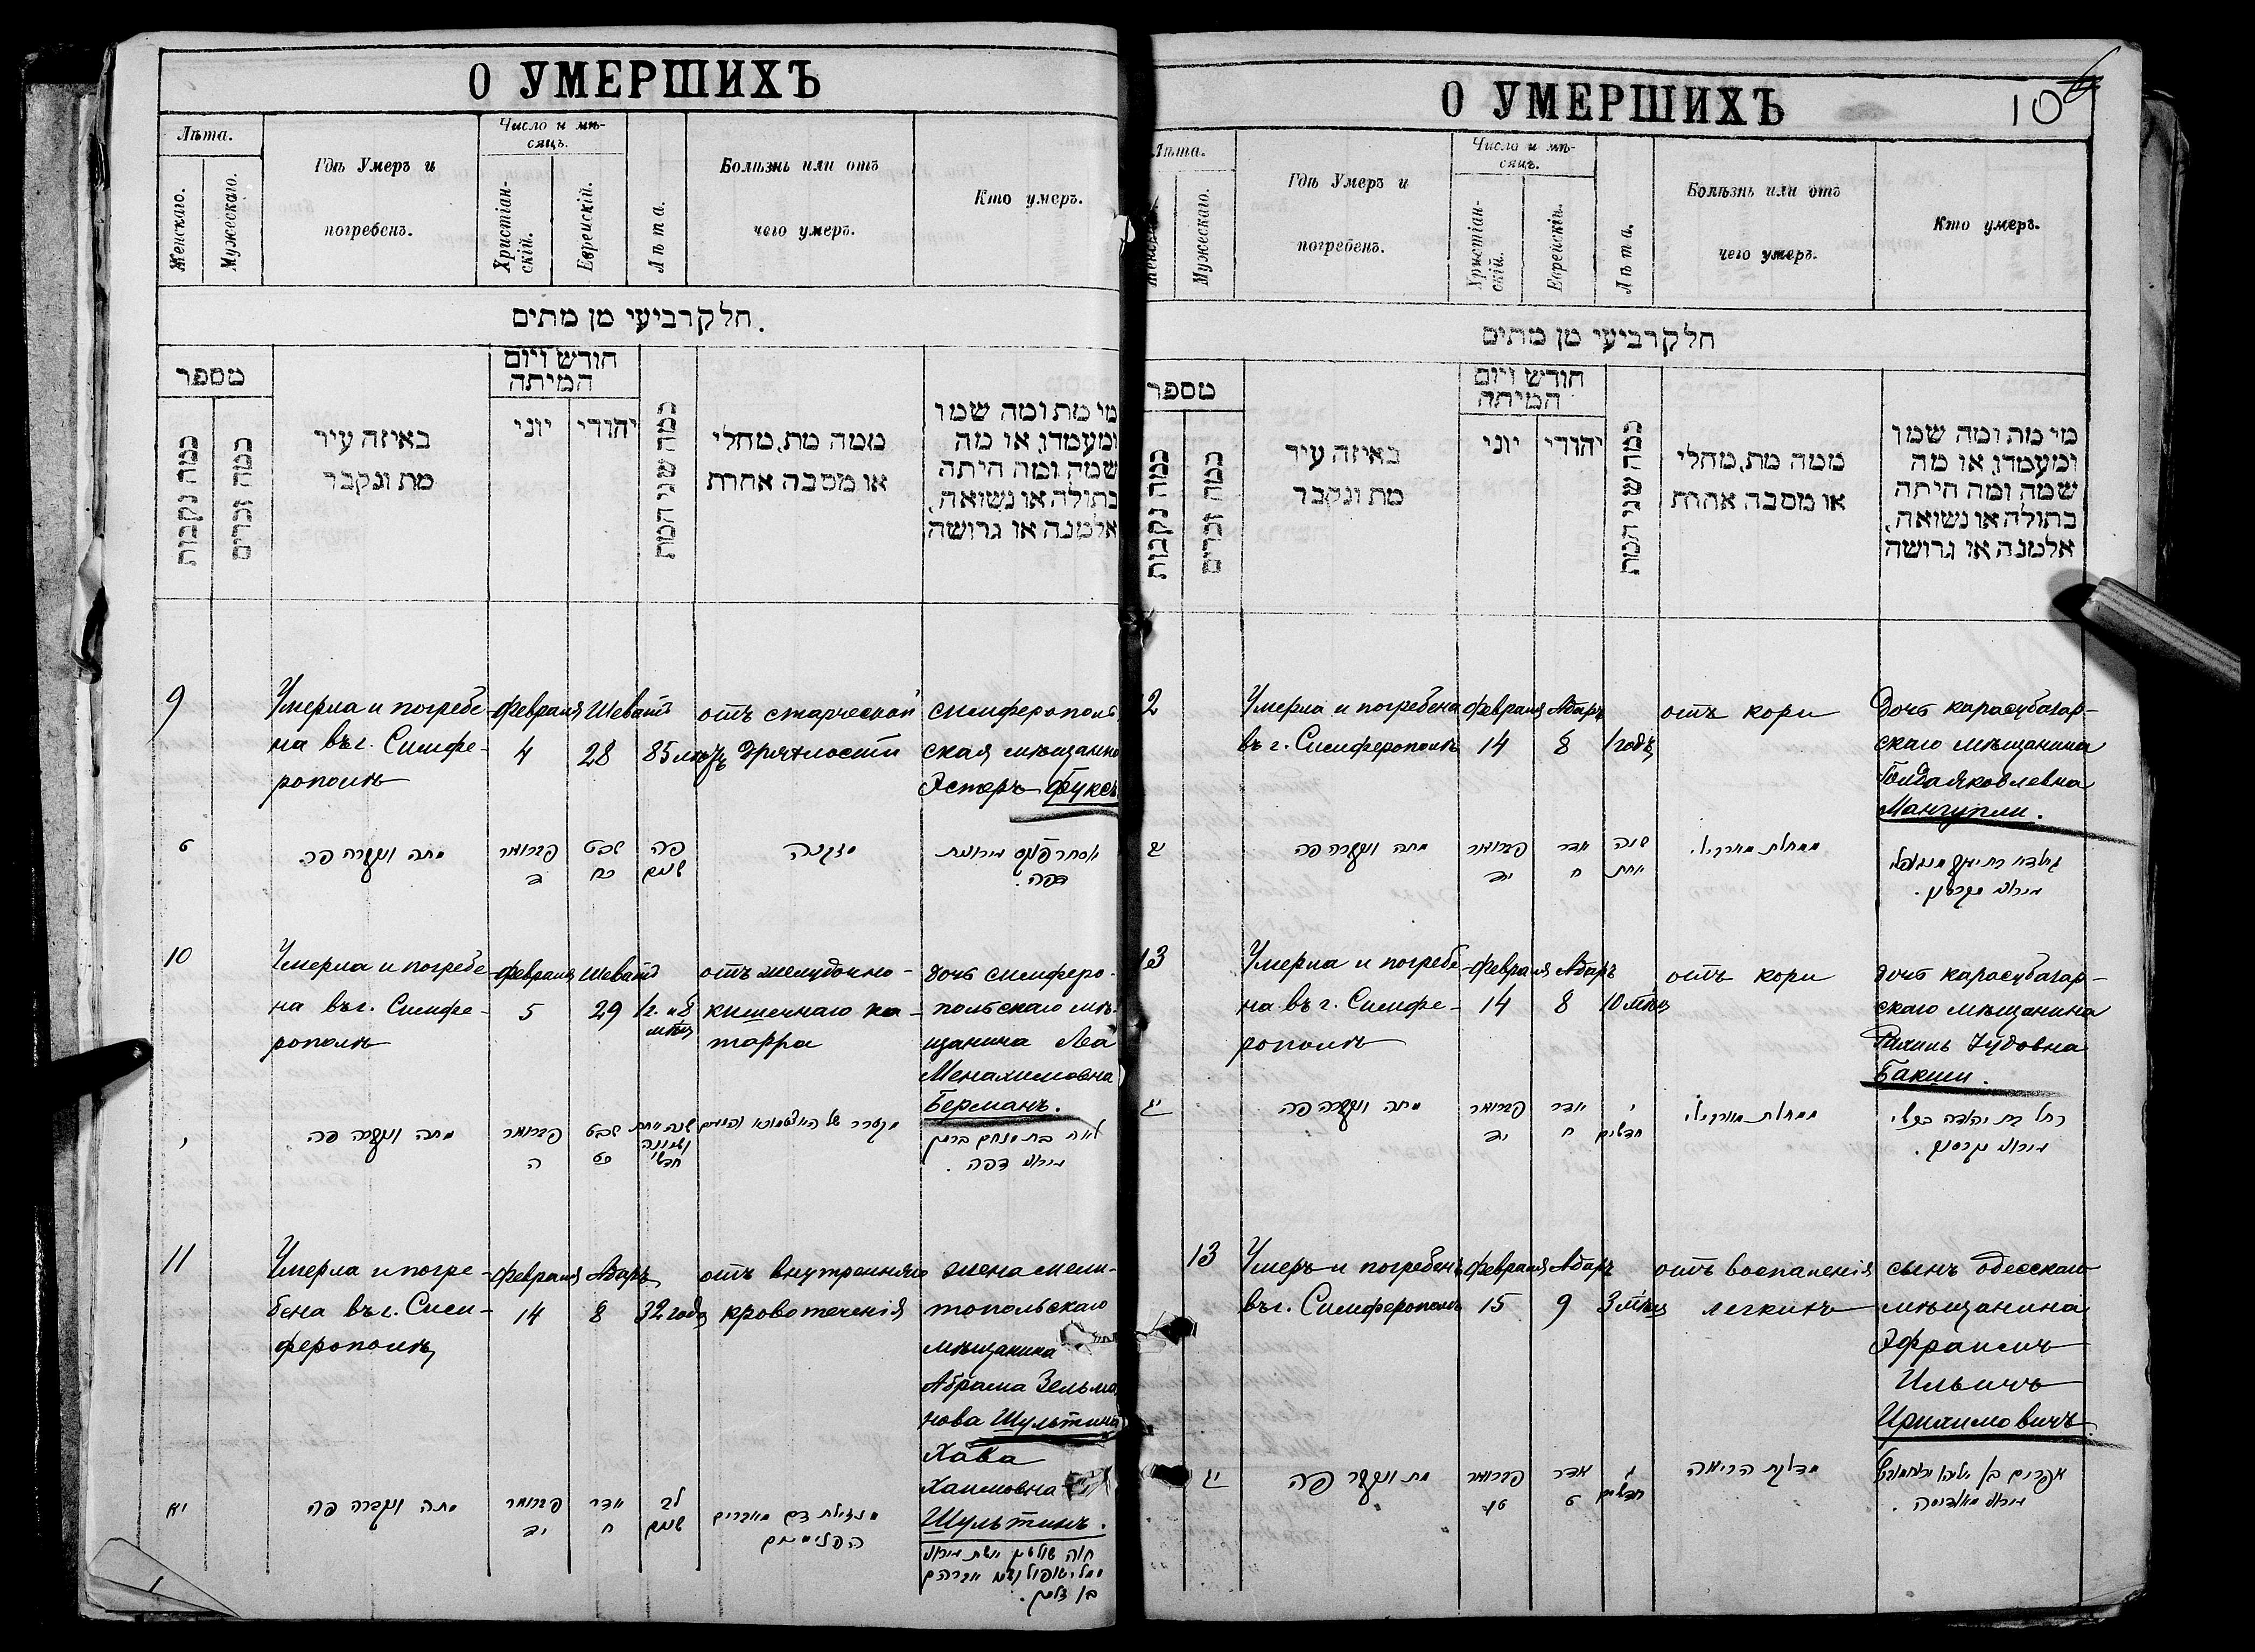 О УМЕРШИХЪ
Лѣта.
Женскаго.
Мужескаго.
Гдѣ Умеръ и
погребенъ.
Число и мѣ-
сяцъ.
Христіан-
скій.
Еврейскій.
Лѣта.
Болѣзнь или отъ
чего умеръ.
Кто умеръ.
חלק רביעי מן מתים.
מספר
כמה נקבות
כמה זכרים
באיזה עיר
מת ונקבר
חודש ויום
המיתה
יוני
יהודי
כמה שני המת
ממה מת, מחלי
או מסבה אחרת
מי מת ומה שמו
ומעמדו, או מה
שמה ומה היתה
בתולה או נשואה,
אלמנה או גרושה
9
Умерла и погребе-
на въ г. Симфе-
рополѣ
февраля
4
Шеватъ
28
85 лѣтъ
отъ старческой
дряхлости
симферополь
ская мѣщанка
Эстеръ Фуксъ
ט
מתה ונקברה פה
פברואר
ד
שבט
כח
פה
שנים
מזקנה
אסתר פוקס
דפה.
10
Умерла и погребе-
на въ г. Симфе-
рополѣ
февраля
5
Шеватъ
29
1 г. и 8
мѣсц
отъ желудочно-
кишечнаго ка-
тарра
дочь симферо-
польскаго мѣ-
щанина Леа
Менахимовна
Берманъ.
י
מתה ונקברה פה
פברואר
ה
שבט
כט
שנה אחת
ושמונה
חדשי
לאה בת מנחם ברמן
דפה.
11
Умерла и погре-
бена въ г. Сим-
ферополѣ
февраля
14
Адаръ
8
32 года
отъ внутренняго
кровотеченія
жена мели-
топольскаго
мѣщанина
Абрама Зельма
нова Шультина
Хава
Хаимовна
Шультинъ.
יא
מתה ונקברה פה
פברואר
יד
אדר
ח
לב
שנים
מנזילת דם מאברים
הפנימים
חוה שולטין אשת
אברהם
בן זלמן.
О УМЕРШИХЪ
10
Лѣта.
Женскаго.
Мужескаго.
Гдѣ Умеръ и
погребенъ.
Число и мѣ-
сяцъ.
Христіан-
скій.
Еврейскій.
Лѣта.
Болѣзнь или отъ
чего умеръ.
Кто умеръ.
חלק רביעי מן מתים
מספר
כמה נקבות
כמה זכרים
באיזה עיר
מת ונקבר
חודש ויום
המיתה
יוני
יהודי
כמה שני המת
ממה מת, מחלי
או מסבה אחרת
מי מת ומה שמו
ומעמדו, או מה
שמה ומה היתה
בתולה או נשואה,
אלמנה או גרושה
12
Умерла и погребена
въ г. Симферополѣ
февраля
14
Адаръ
8
1 годъ
отъ кори
Дочь карасубазар-
скаго мѣщанина
Яковлевна
Мангупли.
מתה ונקברה פה
פברואר
יד
אדר
ח
שנה
אחת
13
Умерла и погребе-
на въ г. Симфе-
рополѣ
февраля
14
Адаръ
8
10 мѣсц
отъ кори
дочь карасубазар-
скаго мѣщанина
Рахиль Іудовна
Бакши.
יג
מתה ונקברה פה
פברואר
יד
אדר
ח
י
חדשים
רחל בת יהודה בקשי
13
Умеръ и погребенъ
въ г. Симферополѣ
февраля
15
Адаръ
9
3 мѣсц
отъ воспаленія
легкихъ
сынъ одесскаго
мѣщанина
Эфраимъ
Ильичъ
Ирихимовичъ
יג
מת ונקבר פה
פברואר
טו
אדר
ט
ג
חדשים
מדלקת הריאה
אפרים בן אליהו